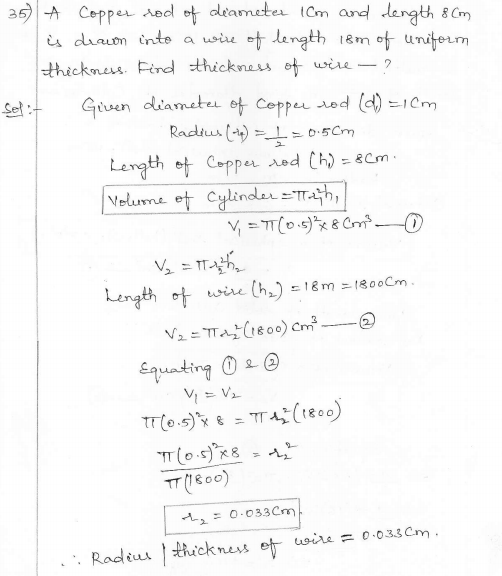 35) A Copper rod of diameter 1Cm and length 8Cm
is drawn into a wire of length 18m of uniform
thickness. Find thickness of wire — ?
Sol:- Given diameter of Copper rod (d₁) = 1Cm
Radius (r₁) = 1/2 = 0.5Cm
Length of Copper rod (h₁) = 8Cm.
Volume of Cylinder = πr₁²h₁
V₁ = π(0.5)² x 8 Cm³ — ①
V₂ = πr₂²h₂
Length of wire (h₂) = 18m = 1800Cm.
V₂ = πr₂²(1800) Cm³ — ②
Equating ① & ②
V₁ = V₂
π(0.5)² x 8 = πr₂²(1800)
π(0.5)² x 8 / π(1800) = r₂²
r₂ = 0.033Cm.
∴ Radius | thickness of wire = 0.033Cm.